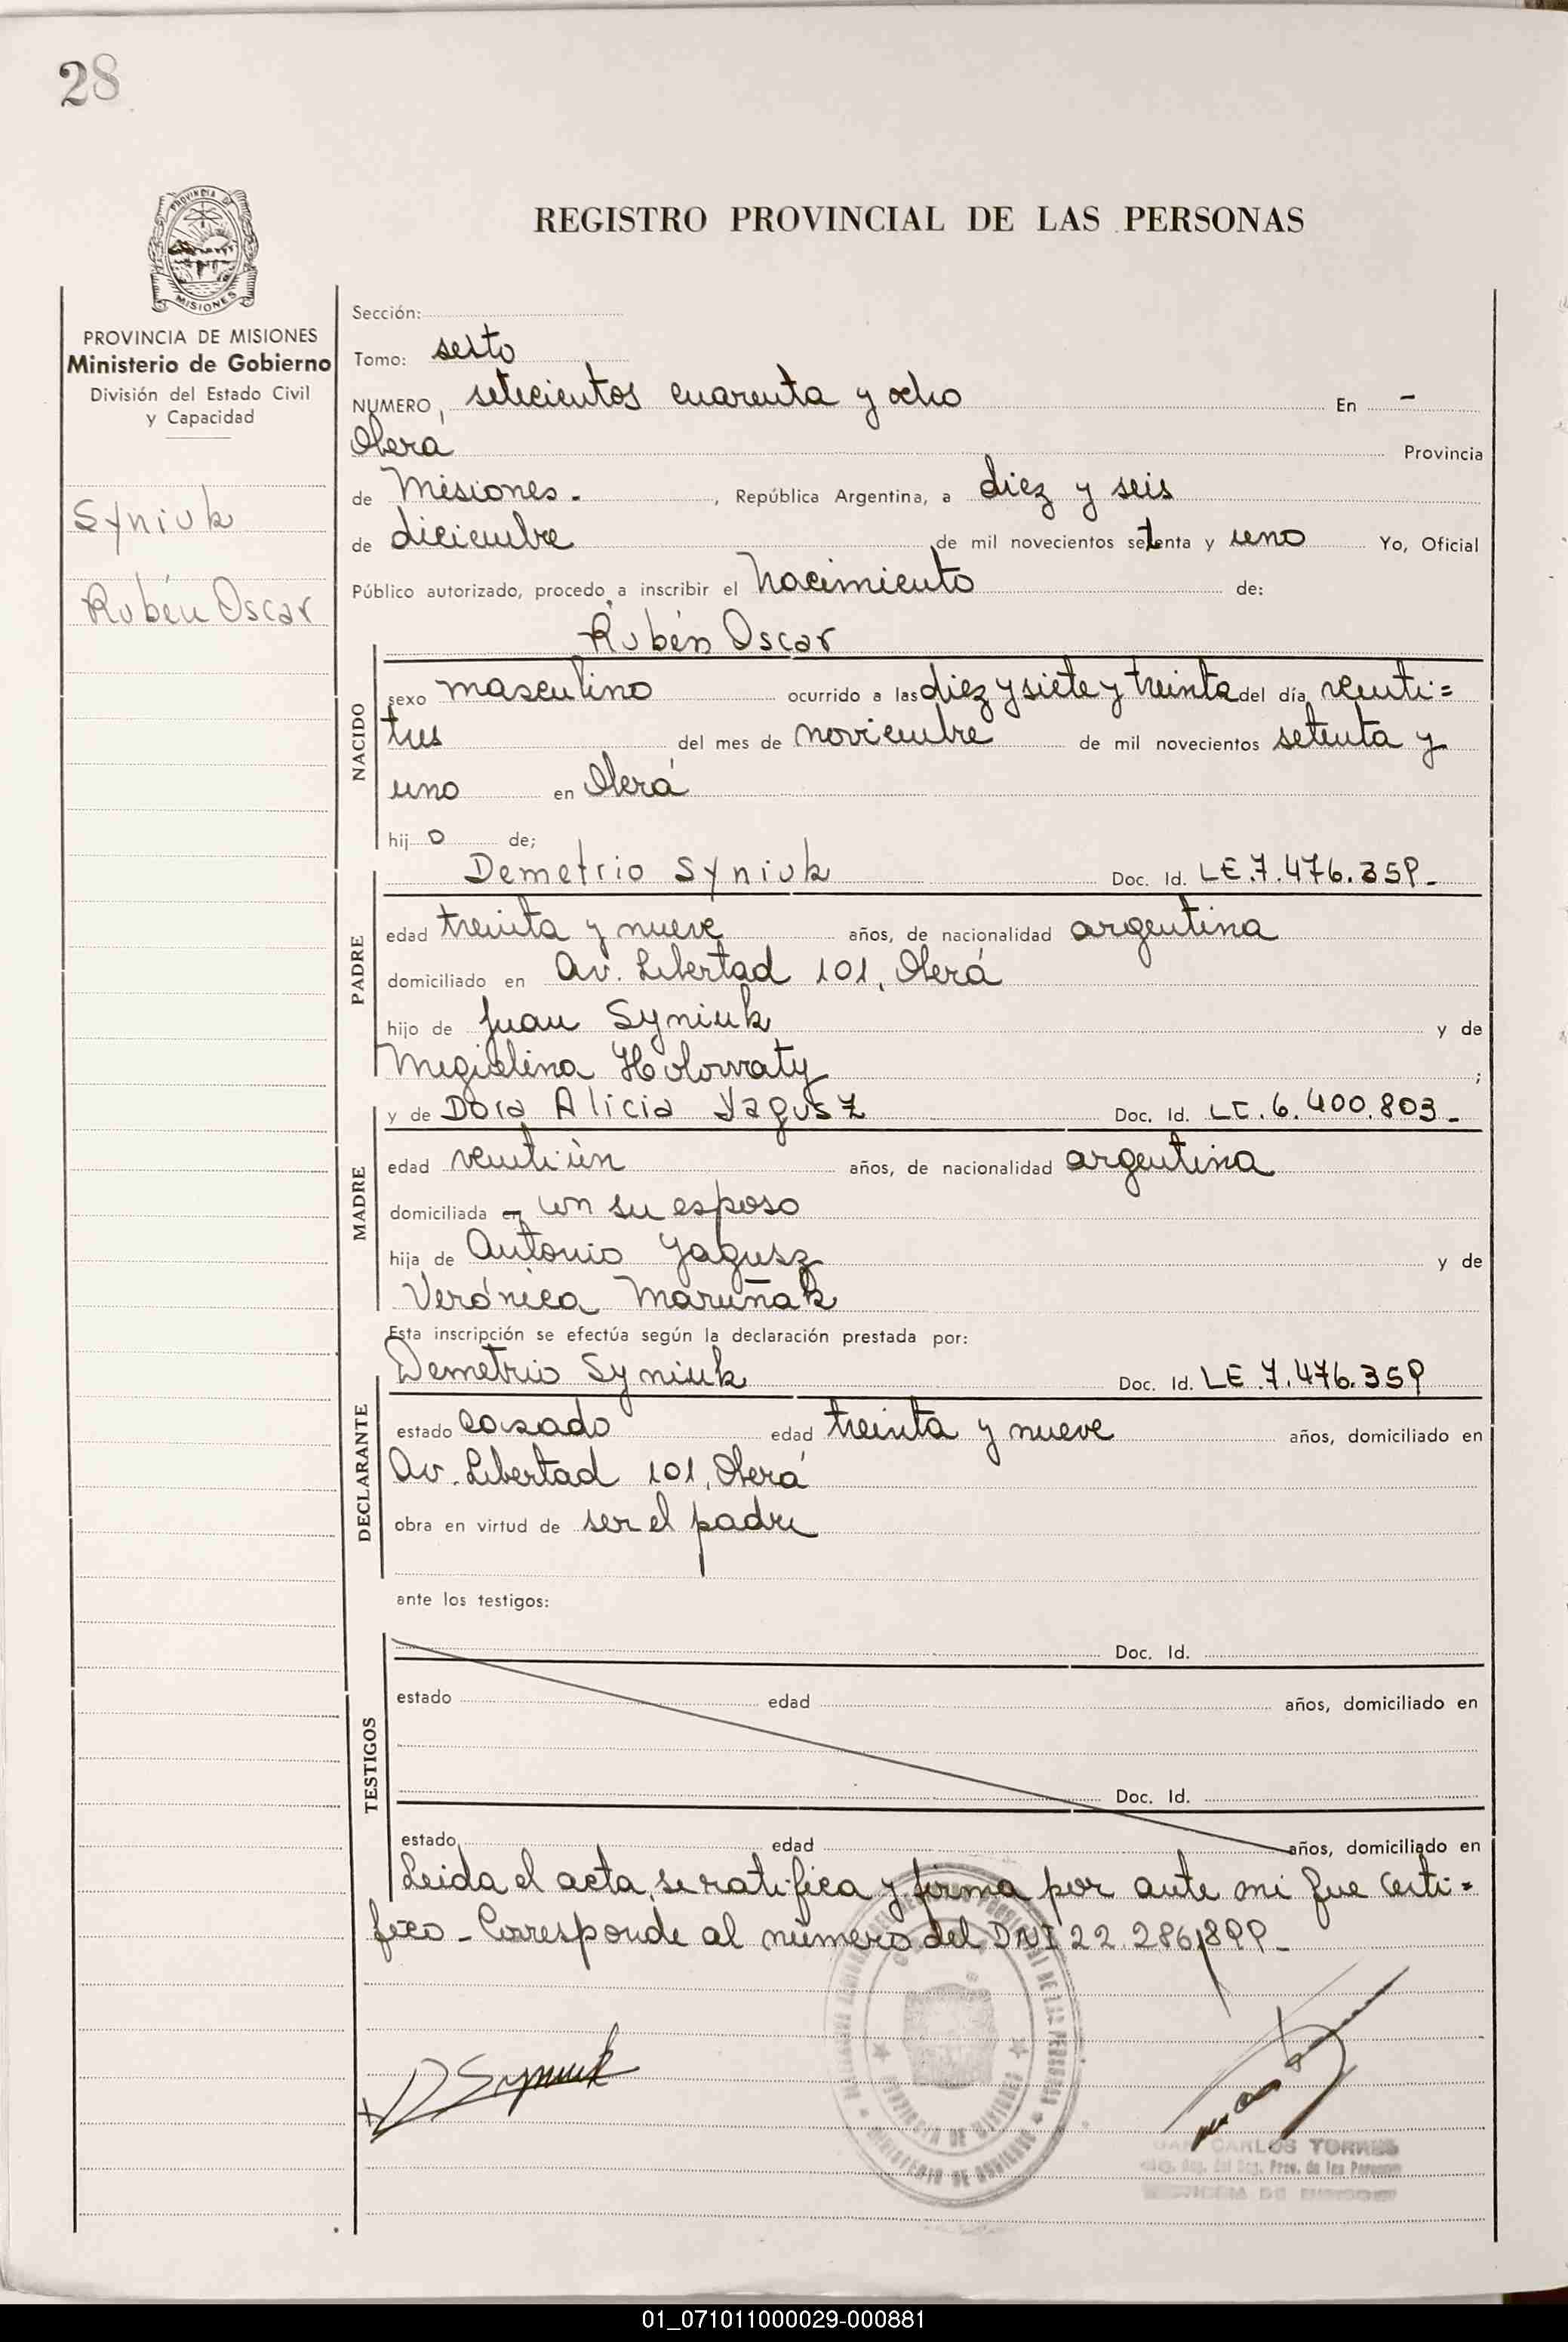 28
PROVINCIA DE
MISIONES
REGISTRO PROVINCIAL DE LAS PERSONAS
PROVINCIA DE MISIONES
Ministerio de Gobierno
División del Estado Civil
y Capacidad
Syniuk
Rubén Oscar
Sección:
Tomo: sexto
NUMERO, setecientos cuarenta y ocho En -
Oberá Provincia
de Misiones. , República Argentina, a diez y seis
de diciembre de mil novecientos setenta y uno Yo, Oficial
Público autorizado, procedo a inscribir el nacimiento de:
Rubén Oscar
NACIDO
sexo masculino ocurrido a las diez y siete y treinta del día veinti=
tres del mes de noviembre de mil novecientos setenta y
uno en Oberá
hijo de;
PADRE
Demetrio Syniuk Doc. Id. LE.7.476.359-
edad treinta y nueve años, de nacionalidad argentina
domiciliado en Av. Libertad 101, Oberá
hijo de Juan Syniuk y de
Megislina Holowaty ;
MADRE
y de Dora Alicia Yagusz Doc. Id. LC.6.400.803-
edad veintiún años, de nacionalidad argentina
domiciliada en con su esposo
hija de Antonio Yagusz y de
Verónica Maruñak
Esta inscripción se efectúa según la declaración prestada por:
DECLARANTE
Demetrio Syniuk Doc. Id. LE.7.476.359
estado casado edad treinta y nueve años, domiciliado en
Av. Libertad 101, Oberá
obra en virtud de ser el padre
ante los testigos:
TESTIGOS
Doc. Id.
estado edad años, domiciliado en
Doc. Id.
estado edad años, domiciliado en
Leida el acta, se ratifica y firma por ante mi que certi=
fico - Corresponde al número del DNI 22.286.899-
D Syniuk
PROVINCIA DE MISIONES
MINISTERIO DE GOBIERNO
CARLOS TORRES
Prov. de las Personas
01_071011000029-000881